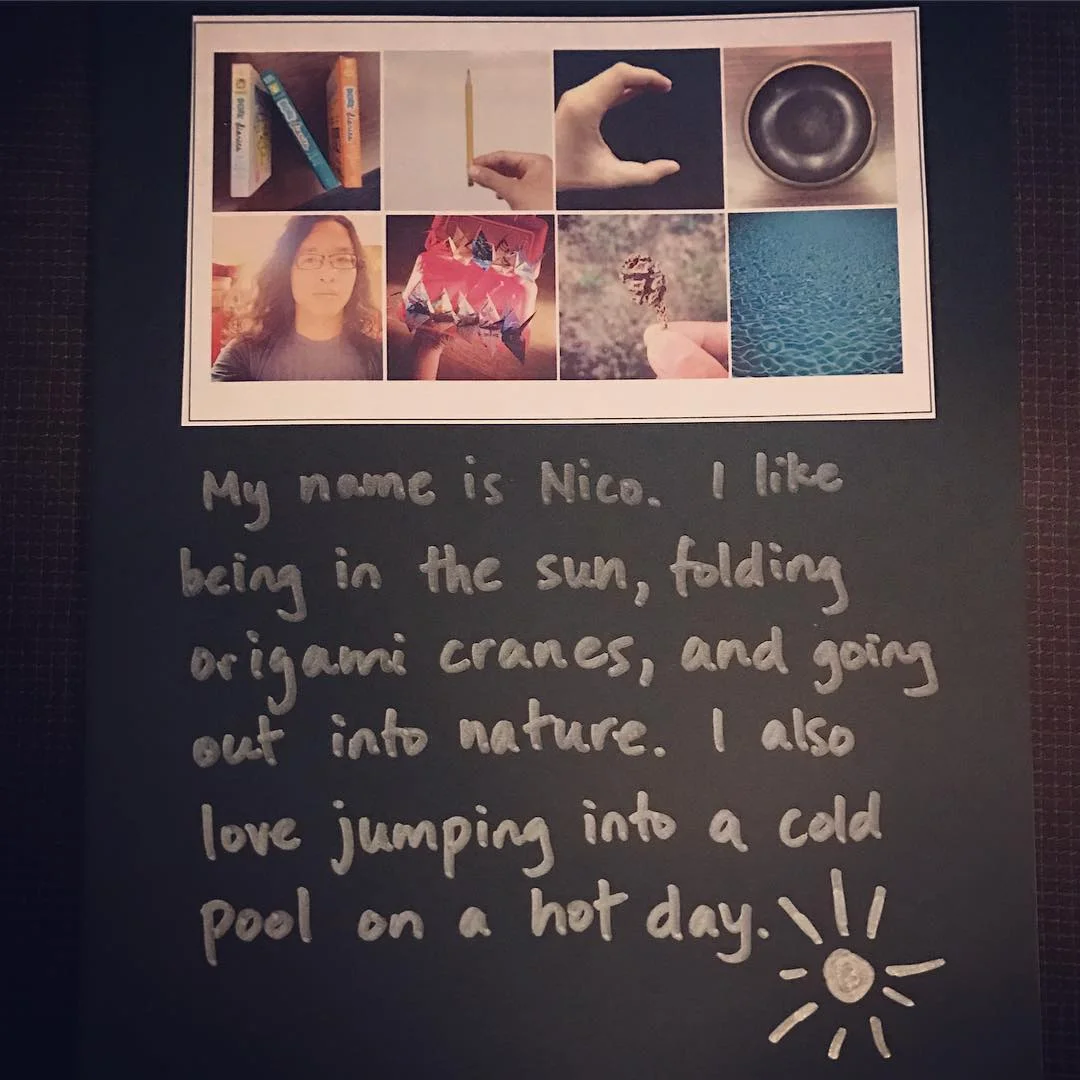 DORK diaries
DORK diaries
DORK diaries
My name is Nico. I like
being in the sun, folding
origami cranes, and going
out into nature. I also
love jumping into a cold
pool on a hot day.